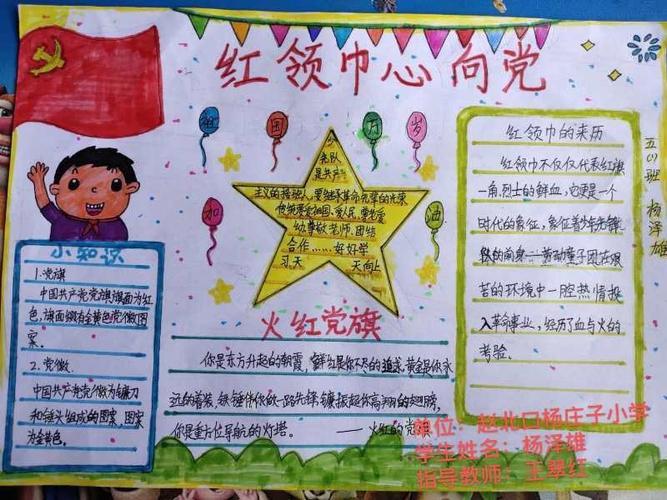 红领巾心向党
祖国万岁
加油
五(1)班 杨泽雄
少先队
是共产
主义的接班人,要继承革命先辈的光荣
传统,要爱祖国、爱人民,
幼尊敬老师,团结
合作……好好学
习,天天向上
小知识
1.党旗
中国共产党党旗旗面为红
色,旗面缀有金黄色党徽图
案。
2.党徽
中国共产党党徽为镰刀
和锤头组成的图案,图案
为金黄色。
火红党旗
你是东方升起的朝霞,鲜红是你不尽的追求,黄金是你永
远的着装,铁锤伴你做一路先锋,镰振起你高翔的翅膀,
你是垂方位导航的灯塔。 ——火红的党
红领巾的来历
红领巾不仅仅代表红旗
一角,烈士的鲜血,它更是一个
时代的象征,象征着少年先锋
队的前身——劳动童子团在艰
苦的环境中一腔热情投
入革命事业,经历了血与火的
考验。
单位:赵北口杨庄子小学
学生姓名:杨泽雄
指导教师:王翠红